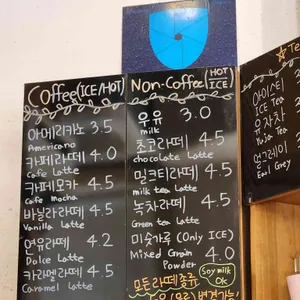 Coffee (ICE/HOT)
아메리카노 3.5
Americano
카페라떼 4.0
Cafe Latte
카페모카 4.5
Cafe mocha
바닐라라떼 4.5
Vanilla Latte
연유라떼 4.2
Dolce Latte
카라멜라떼 4.5
Caramel Latte
Non-Coffee (HOT/ICE)
우유 3.0
milk
초코라떼 4.5
chocolate Latte
밀크티라떼 4.5
milk tea Latte
녹차라떼 4.5
Green tea Latte
미숫가루 (Only ICE)
Mixed Grain 4.0
Powder
모든 라떼종류
Soy milk
Ok
☆Te
아이스티
ICE Tea
유자차
Yuja Tea
얼그레이
Earl Grey